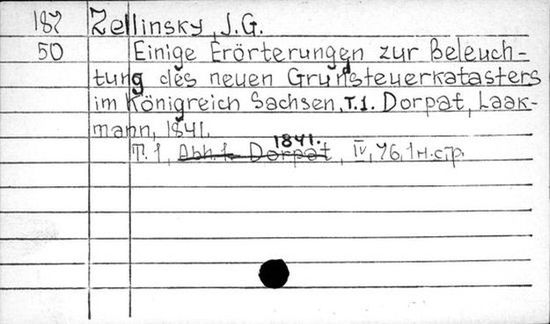 187 Zellinsky, J.G.
50 Einige Erörterungen zur Beleuch-
tung des neuen Grundsteuerkatasters
im Königreich Sachsen, T.1. Dorpat, Laak-
mann, 1841.
1841.
T.1, Abh.1. Dorpat, IV, 76, 1 н.с.р.